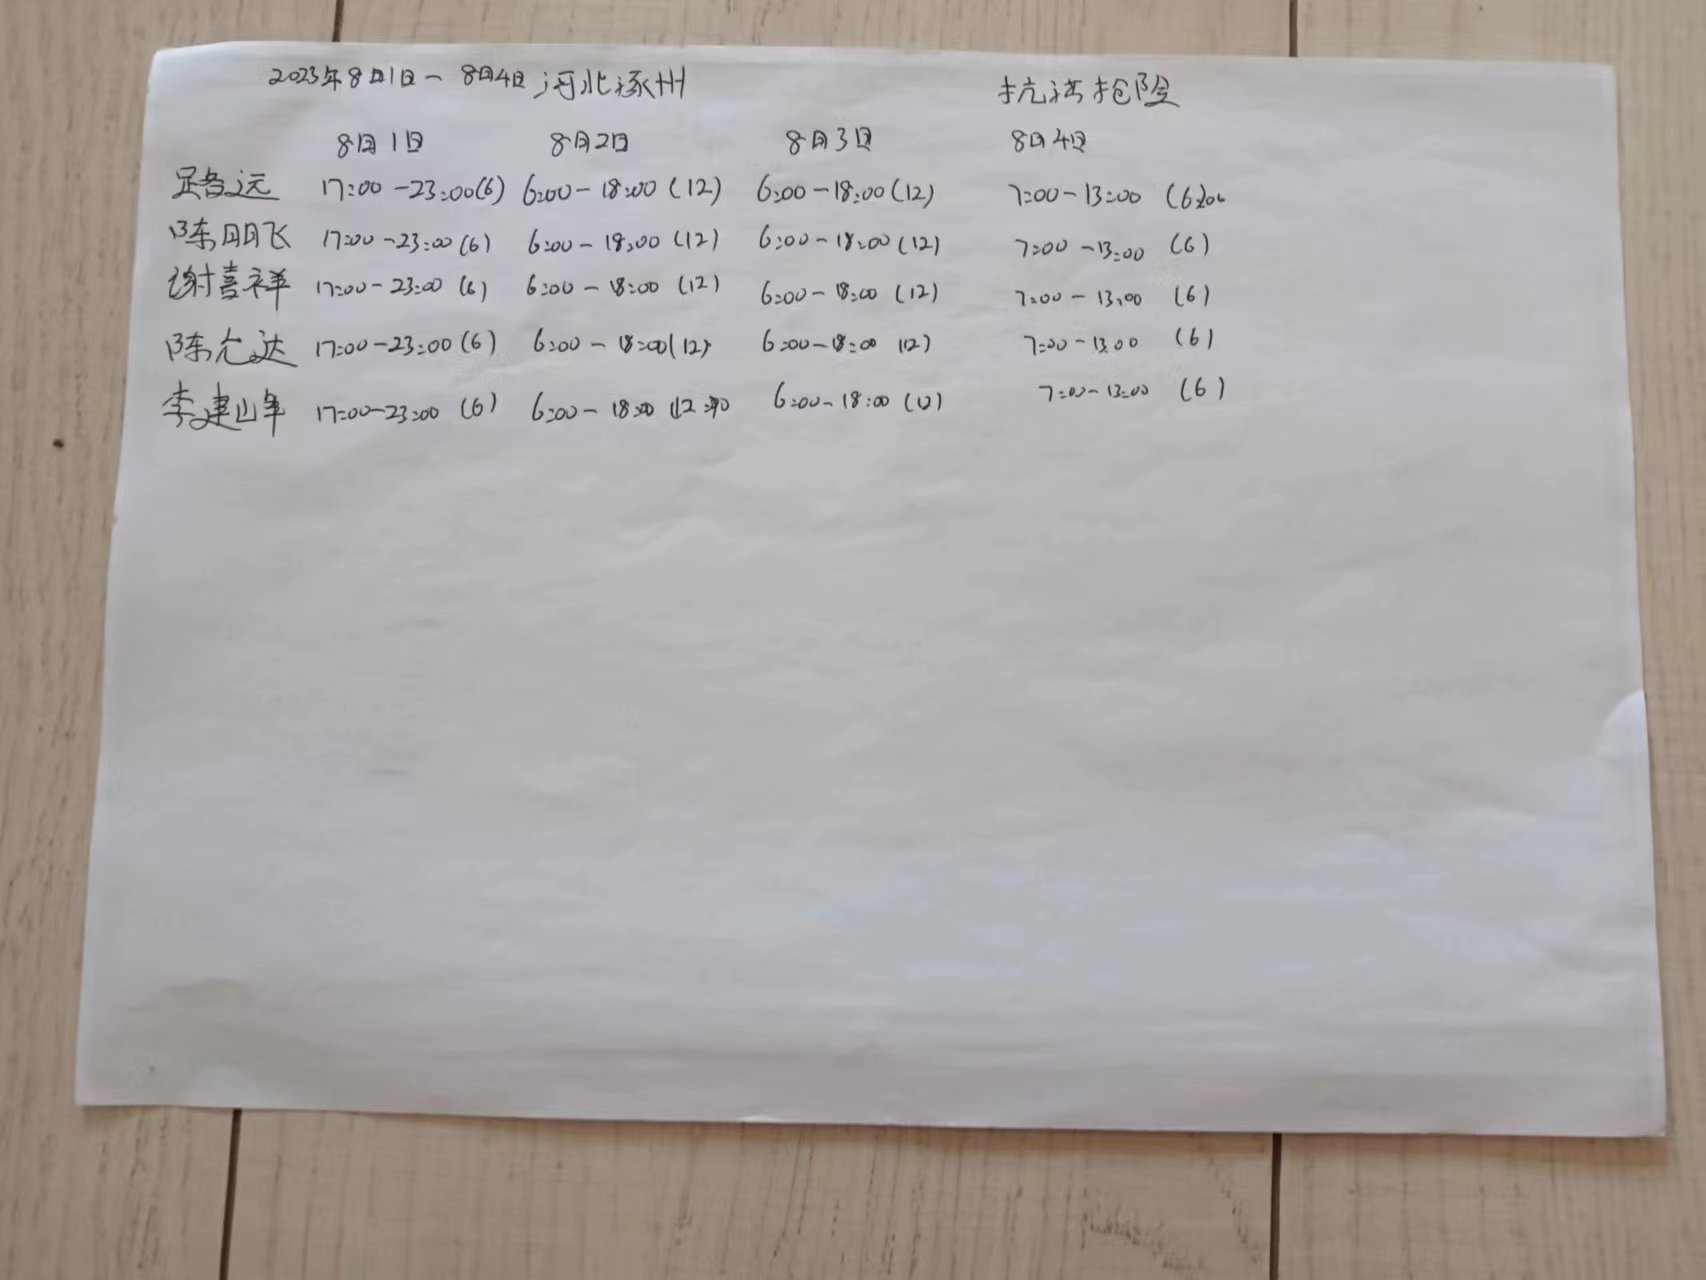 2023年8月1日一 8月4日 河北涿州 抗洪抢险
8月1日 8月2日 8月3日 8月4日
17:00-23:00(6) 6:00-18:00(12) 6:00-18:00(12) 7:00-13:00
陈明飞 17:00-23:00(6) 6:00-18:00(12) 6:00-18:00(12) 7:00-13:00 (6)
谢喜祥 17:00-23:00(6) 6:00-18:00(12) 6:00-18:00(12) 7:00-13:00 (6)
陈允达 17:00-23:00(6) 6:00-18:00(12) 6:00-18:00 12) 7:00-13:00 (6)
李建 17:00-23:00 (6) 6:00-18:00 6:00-18:00 (12) 7:00-13:00 (6)